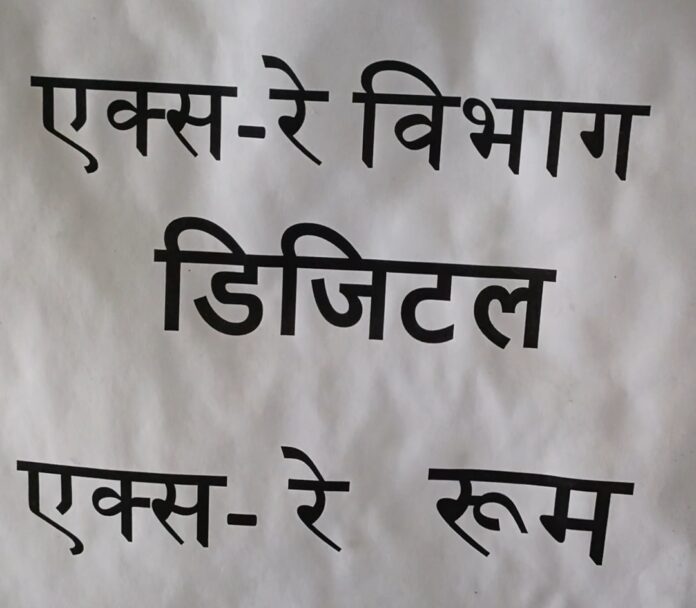 एक्स-रे विभाग
डिजिटल
एक्स- रे रूम